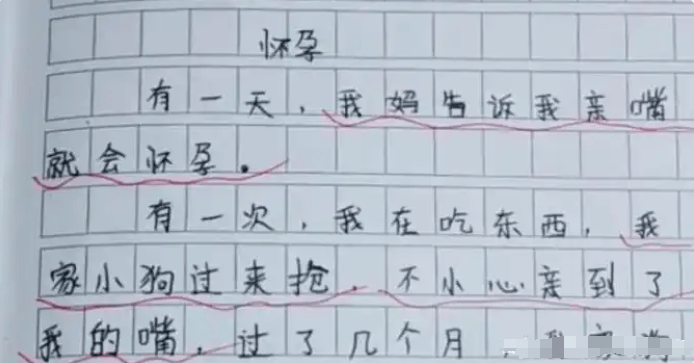 怀孕
有一天，我妈告诉我亲嘴
就会怀孕。
有一次，我在吃东西，我
家小狗过来抢，不小心亲到了
我的嘴，过了几个月，